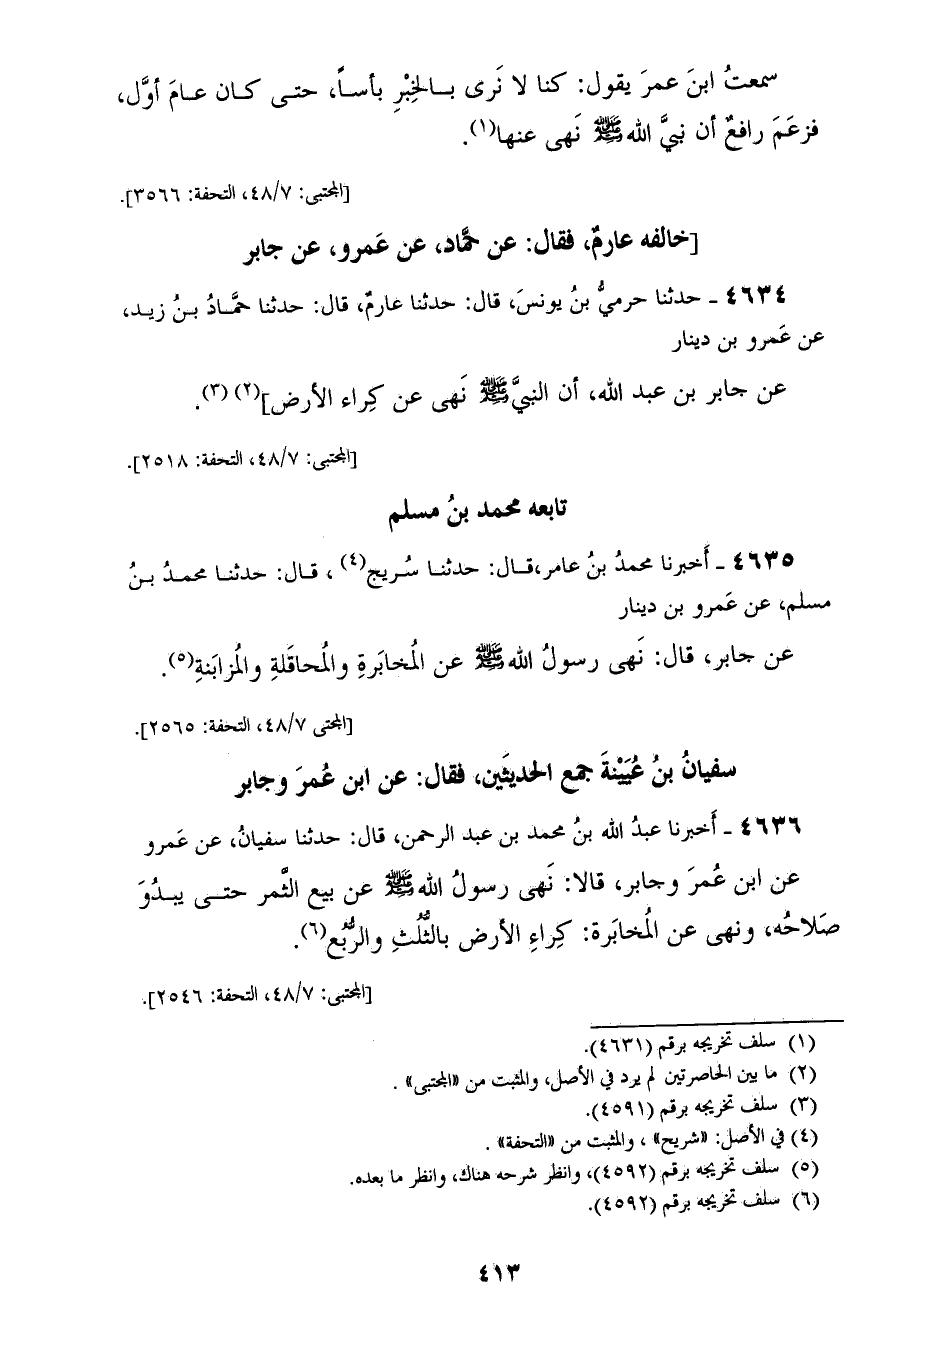 سمعتُ ابنَ عمرَ يقول: كنا لا نَرى بالخِبْرِ بأساً، حتى كان عامَ أوَّل،
فزعَمَ رافعٌ أن نبيَّ اللهﷺ نَهى عنها(١).
[المجتبى: ٤٨/٧، التحفة: ٣٥٦٦].
[خالفه عارمٌ، فقال: عن حمَّاد، عن عَمرو، عن جابر
٤٦٣٤ ـ حدثنا حرميُّ بنُ يونسَ، قال: حدثنا عارمٌ، قال: حدثنا حمَّادُ بنُ زيد،
عن عَمرو بن دينار
عن جابر بن عبد الله، أن النبيَّﷺ نَهى عن كِراء الأرض](٢) (٣).
[المجتبى: ٤٨/٧، التحفة: ٢٥١٨].
تابعه محمد بنُ مسلم
٤٦٣٥ ـ أَخبرنا محمدُ بنُ عامر،قال: حدثنا سُريج(٤) ، قال: حدثنا محمدُ بنُ
مسلم، عن عَمرو بن دينار
عن جابر، قال: نَهى رسولُ اللهﷺ عن المُخابَرةِ والمُحاقَلةِ والمُزابَنةِ(٥).
[المجتى ٤٨/٧، التحفة: ٢٥٦٥].
سفيانُ بنُ عُيَيْنةَ جمع الحديثَين، فقال: عن ابن عُمرَ وجابر
٤٦٣٦ ـ أَخبرنا عبدُ الله بنُ محمد بن عبد الرحمن، قال: حدثنا سفيانُ، عن عَمرو
عن ابن عُمرَ وجابر، قالا: نَهى رسولُ اللهﷺ عن بيع الثَّمر حتى يبدُوَ
صَلاحُه، ونهى عن المُخابَرة: كِراءِ الأرض بالثُّلُثِ والرُّبُع(٦).
[المجتبى: ٤٨/٧، التحفة: ٢٥٤٦].
(١) سلف تخريجه برقم (٤٦٣١).
(٢) ما بين الحاصرتين لم يرد في الأصل، والمثبت من «المجتبى» .
(٣) سلف تخريجه برقم (٤٥٩١).
(٤) في الأصل: «شريح» ، والمثبت من «التحفة» .
(٥) سلف تخريجه برقم (٤٥٩٢)، وانظر شرحه هناك، وانظر ما بعده.
(٦) سلف تخريجه برقم (٤٥٩٢).
٤١٣